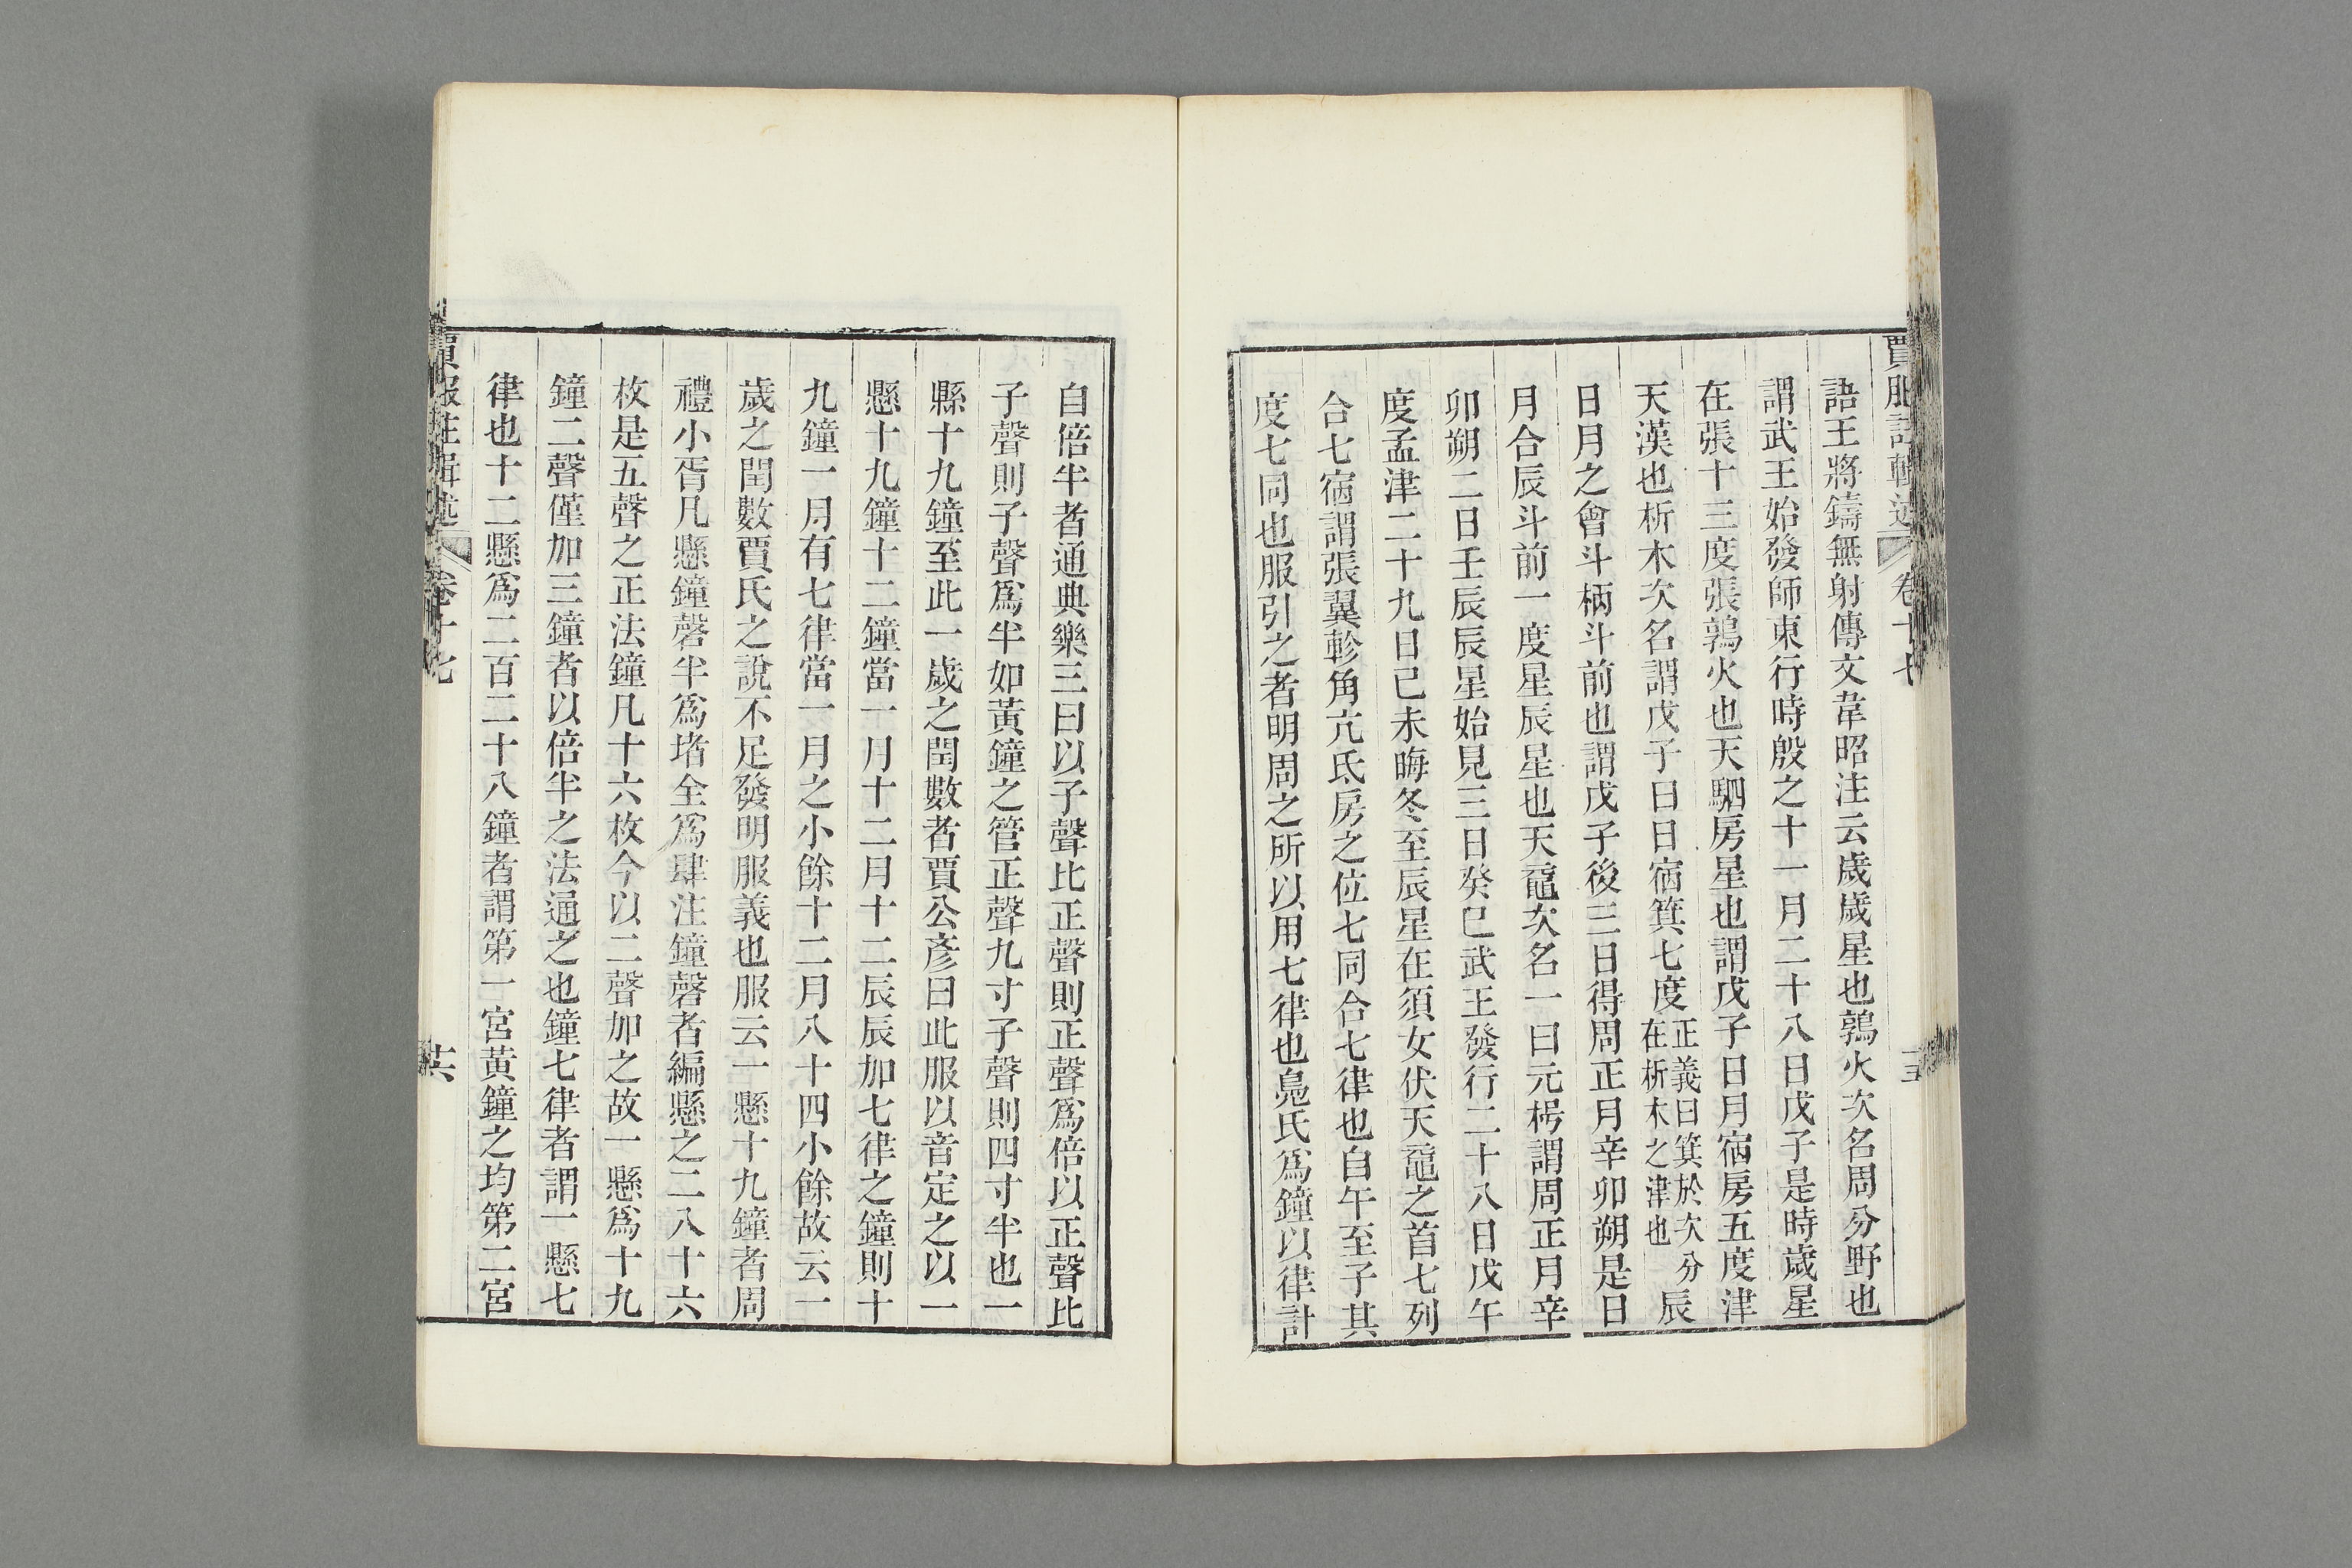 賈服注輯述 卷十七
語王將鑄無射傳文韋昭注云歲歲星也鶉火次名周分野也
謂武王始發師東行時殷之十一月二十八日戊子是時歲星
在張十三度張鶉火也天駟房星也謂戊子日月宿房五度津
天漢也析木次名謂戊子日日宿箕七度正義曰箕於次分在析木之津也辰
日月之會斗柄斗前也謂戊子後三日得周正月辛卯朔是日
月合辰斗前一度星辰星也天黿次名一曰元枵謂周正月辛
卯朔二日壬辰辰星始見三日癸巳武王發行二十八日戊午
度孟津二十九日己未晦冬至辰星在須女伏天黿之首七列
合七宿謂張翼軫角亢氐房之位七同合七律也自午至子其
度七同也服引之者明周之所以用七律也鳧氏爲鐘以律計
自倍半者通典樂三曰以子聲比正聲則正聲爲倍以正聲比
子聲則子聲爲半如黃鐘之管正聲九寸子聲則四寸半也一
縣十九鐘至此一歲之閏數者賈公彥曰此服以音定之以一
懸十九鐘十二鐘當一月十二月十二辰辰加七律之鐘則十
九鐘一月有七律當一月之小餘十二月八十四小餘故云一
歲之閏數賈氏之說不足發明服義也服云一懸十九鐘者周
禮小胥凡懸鐘磬半爲堵全爲肆注鐘磬者編懸之二八十六
枚是五聲之正法鐘凡十六枚今以二聲加之故一懸爲十九
鐘二聲僅加三鐘者以倍半之法通之也鐘七律者謂一懸七
律也十二懸爲二百二十八鐘者謂第一宮黃鐘之均第二宮
賈服注輯述 卷十七 十六